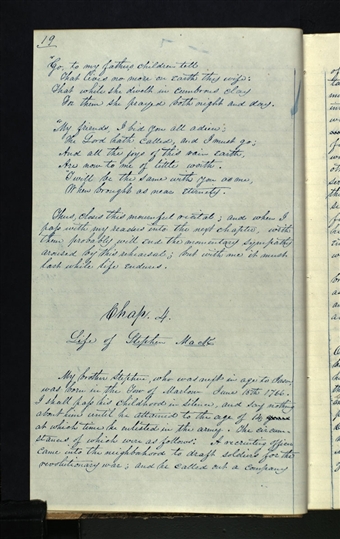 19
"Go, to my fathers children tell
That lives no more on earth thy wife;
That while she dwelth in cumbrous clay
For them she prayed both night and day.
"My friends, I bid you all adieu;
The Lord hath called, and I must go;
And all the joys of this vain earth,
Are now to me of little worth.
T'will be the same with you as me,
When brought as near eternity.
Thus, closes this mournful recital; and when I
pass with my reader into the next chapter, with
them probably will end the momentary sympathy
aroused by this rehearsal; but with me it must
last while life endures.
Chap. 4.
Life of Stephen Mack
My brother Stephen, who was next in age to Jason,
was born in the Tow of Marlow June 15th 1766.
I shall pass his childhood in silence, and say nothing
about him until he attained to the age of 14 years
at which time he enlisted in the army. The circum
stances of which were as follows: A recruiting officer
came into the neighborhood to draft soldiers for the
revolutionary war; and he called out a company